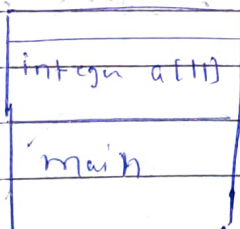 integer a[11]
main